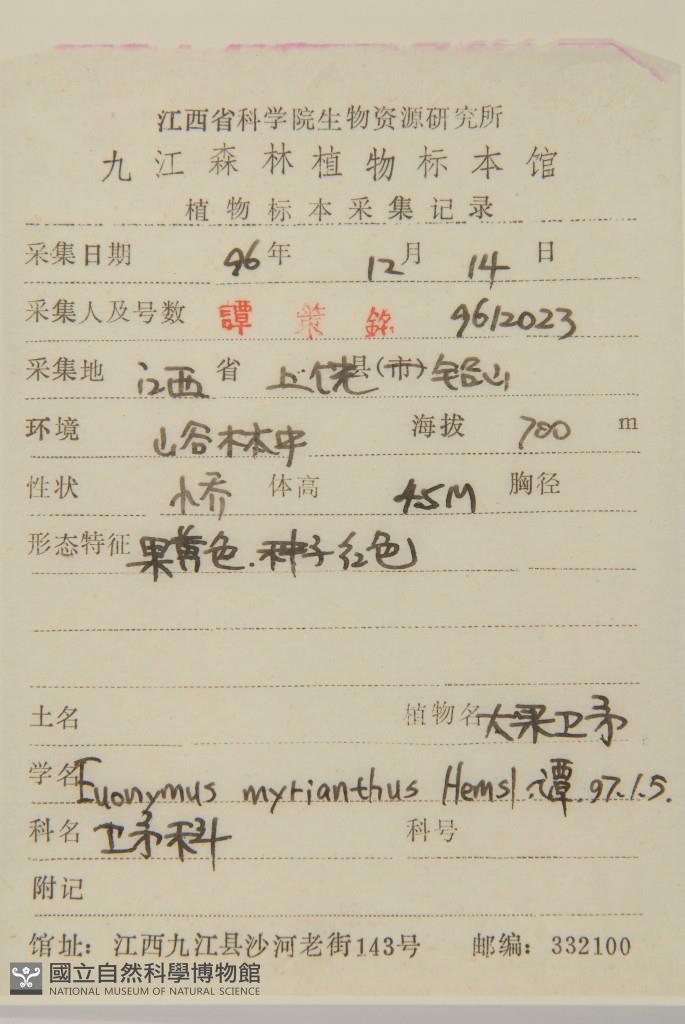 江西省科学院生物资源研究所
九江森林植物标本馆
植物标本采集记录
采集日期 96年 12月 14日
采集人及号数 譚 策 銘 9612023
采集地 江西 省 上饶县(市)铅山
环境 山谷林中 海拔 700 m
性状 小乔 体高 4.5M 胸径
形态特征 果黄色.种子红色
土名 植物名 大果卫矛
学名 Euonymus myrianthus Hemsl 譚.97.1.5.
科名 卫矛科 科号
附记
馆址：江西九江县沙河老街143号 邮编：332100
國立自然科學博物館
NATIONAL MUSEUM OF NATURAL SCIENCE